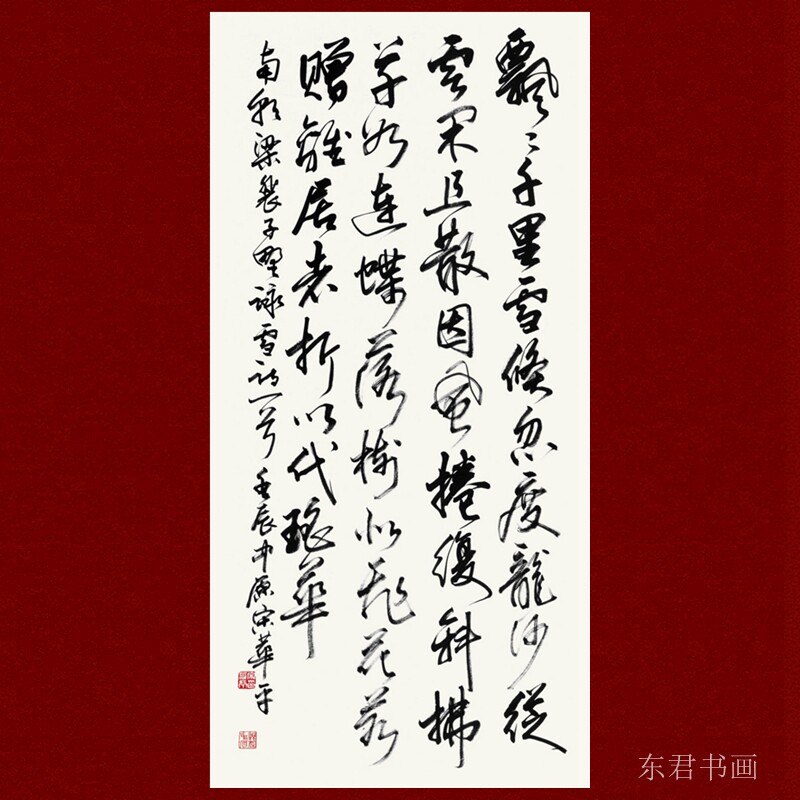 飄〻千里雪倏忽度龍沙從
雲且散因風捲復斜拂
草如連蝶落樹似飛花若
贈離居者折以代瑤華
南朝梁裴子野詠雪詩一首 壬辰中原宋華平
东君书画